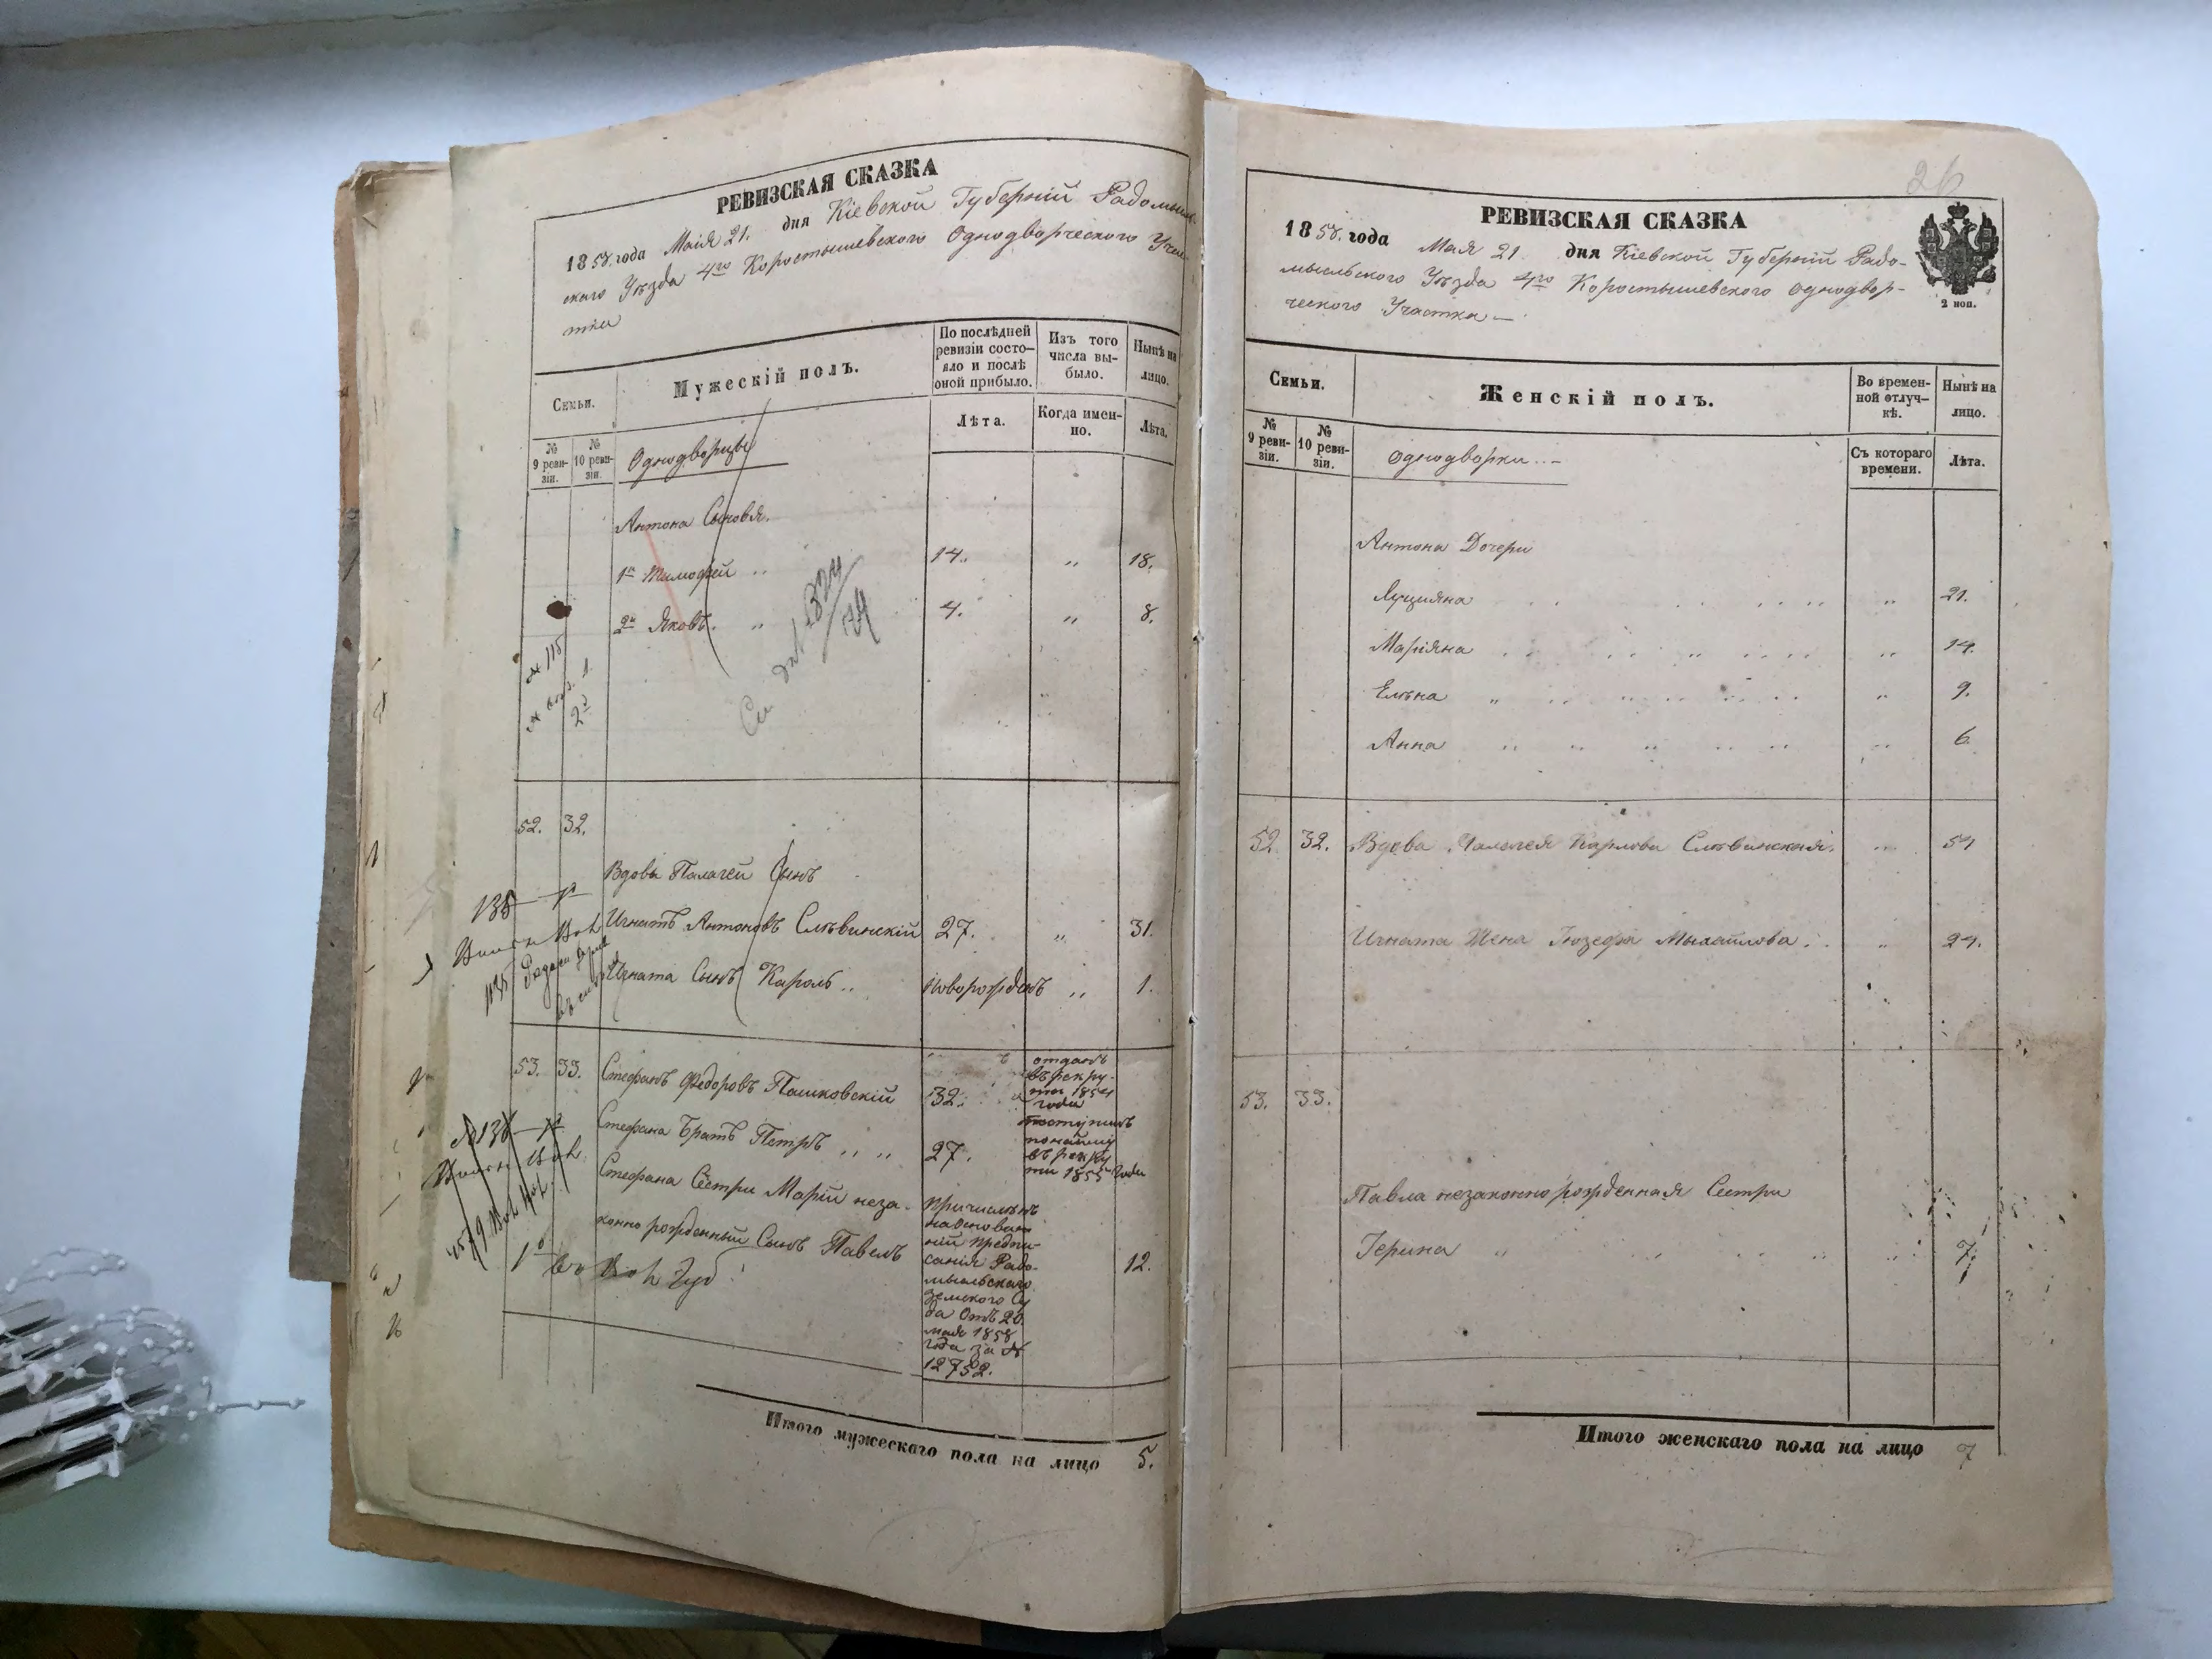 РЕВИЗСКАЯ СКАЗКА
1858. года Маія 21. дня Кіевской Губерніи Радомыль
скаго Уѣзда 4го Коростышевского Однодворческого Учас
тка
Семьи.
Мужескій полъ.
По послѣдней ревизіи состо-
яло и послѣ
оной прибыло.
Изъ того
числа вы-
было.
Нынѣ на
лицо.
№
9 реви-
зіи.
№
10 реви-
зіи.
Лѣта.
Когда имен-
но.
Лѣта.
Однодворцы
Антона Сыновя.
1й Тимофей „ 14. „ 18.
2й Яковъ. „ 4. „ 8.
324
174
115
52. 32.
Вдовы Палагеи Сынъ
Игнатъ Антоновъ Слѣвинскій 27. „ 31.
Игната Сынъ Кароль „ новорожденъ „ 1.
53. 33. Стефанъ Федоровъ Пашковскій 32.
отданъ
въ рекру-
ти 1854
года
Стефана Братъ Петръ „ „ 27.
поступилъ
понайму
въ рекру
ти 1855 года
Стефана Сестри Маріи неза-
конно рожденный Сынъ Павелъ 12.
Причисленъ
на основа
ніи предпи-
санія Радо-
мысльскаго
земского Су
да Отъ 20
мая 1858
года за №
12752.
Итого мужескаго пола на лицо 5.
26
РЕВИЗСКАЯ СКАЗКА
1858. года Мая 21. дня Кіевской Губерніи Радо-
мысльского Уѣзда 4го Коростышевского Однодвор-
ческого Участка —
2 коп.
Семьи.
Женскій полъ.
Во времен-
ной отлуч-
кѣ.
Нынѣ на
лицо.
№
9 реви-
зіи.
№
10 реви-
зіи.
Съ котораго
времени.
Лѣта.
Однодворки.
Антона Дочери
Луцияна „ 21.
Маріяна „ 14.
Елѣна „ 9.
Анна „ 6.
52. 32. Вдова Палагея Карлова Слѣвинская. „ 54
Игната Жена Іюзефа Михайлова. „ 24.
53. 33.
Павла незаконно рожденная Сестри
Герина „ 7.
Итого женскаго пола на лицо 7